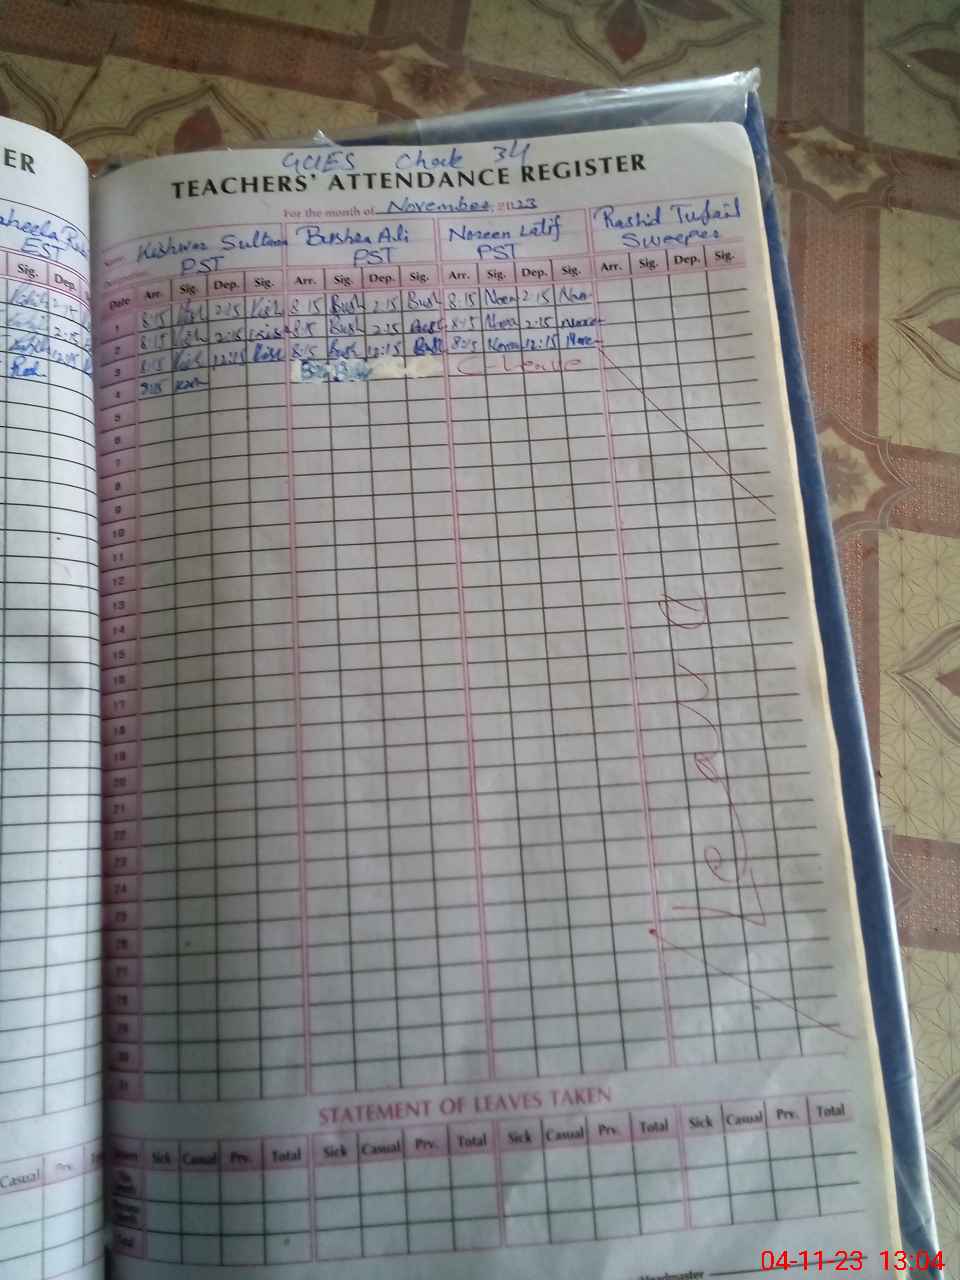 ER
EST
Sig. Dep.
2:15
2:15
12:15
Casual Prv.
GGES Chack 34
TEACHERS' ATTENDANCE REGISTER
For the month of November, 2023
Kishwar Sultana Bushra Ali Noreen Latif Rashid Tufail
PST PST PST Sweeper
Date Arr. Sig. Dep. Sig. Arr. Sig. Dep. Sig. Arr. Sig. Dep. Sig. Arr. Sig. Dep. Sig.
1 8:15 Kish 2:15 Kish 8:15 Bush 2:15 Bush 8:15 2:15
2 8:15 Kish 2:15 8:15 Bush 2:15 Bush 8:15 2:15
3 8:15 Kish 12:15 8:15 Bush 12:15 Bush 8:15 12:15
4 8:15 Kish C-Leave
5
6
7
8
9
10
11
12
13
14
15
16
17
18
19
20
21
22
23
24
25
26
27
28
29
30
31
STATEMENT OF LEAVES TAKEN
Sick Casual Prv. Total Sick Casual Prv. Total Sick Casual Prv. Total Sick Casual Prv. Total
Total
Headmaster
04-11-23 13:04